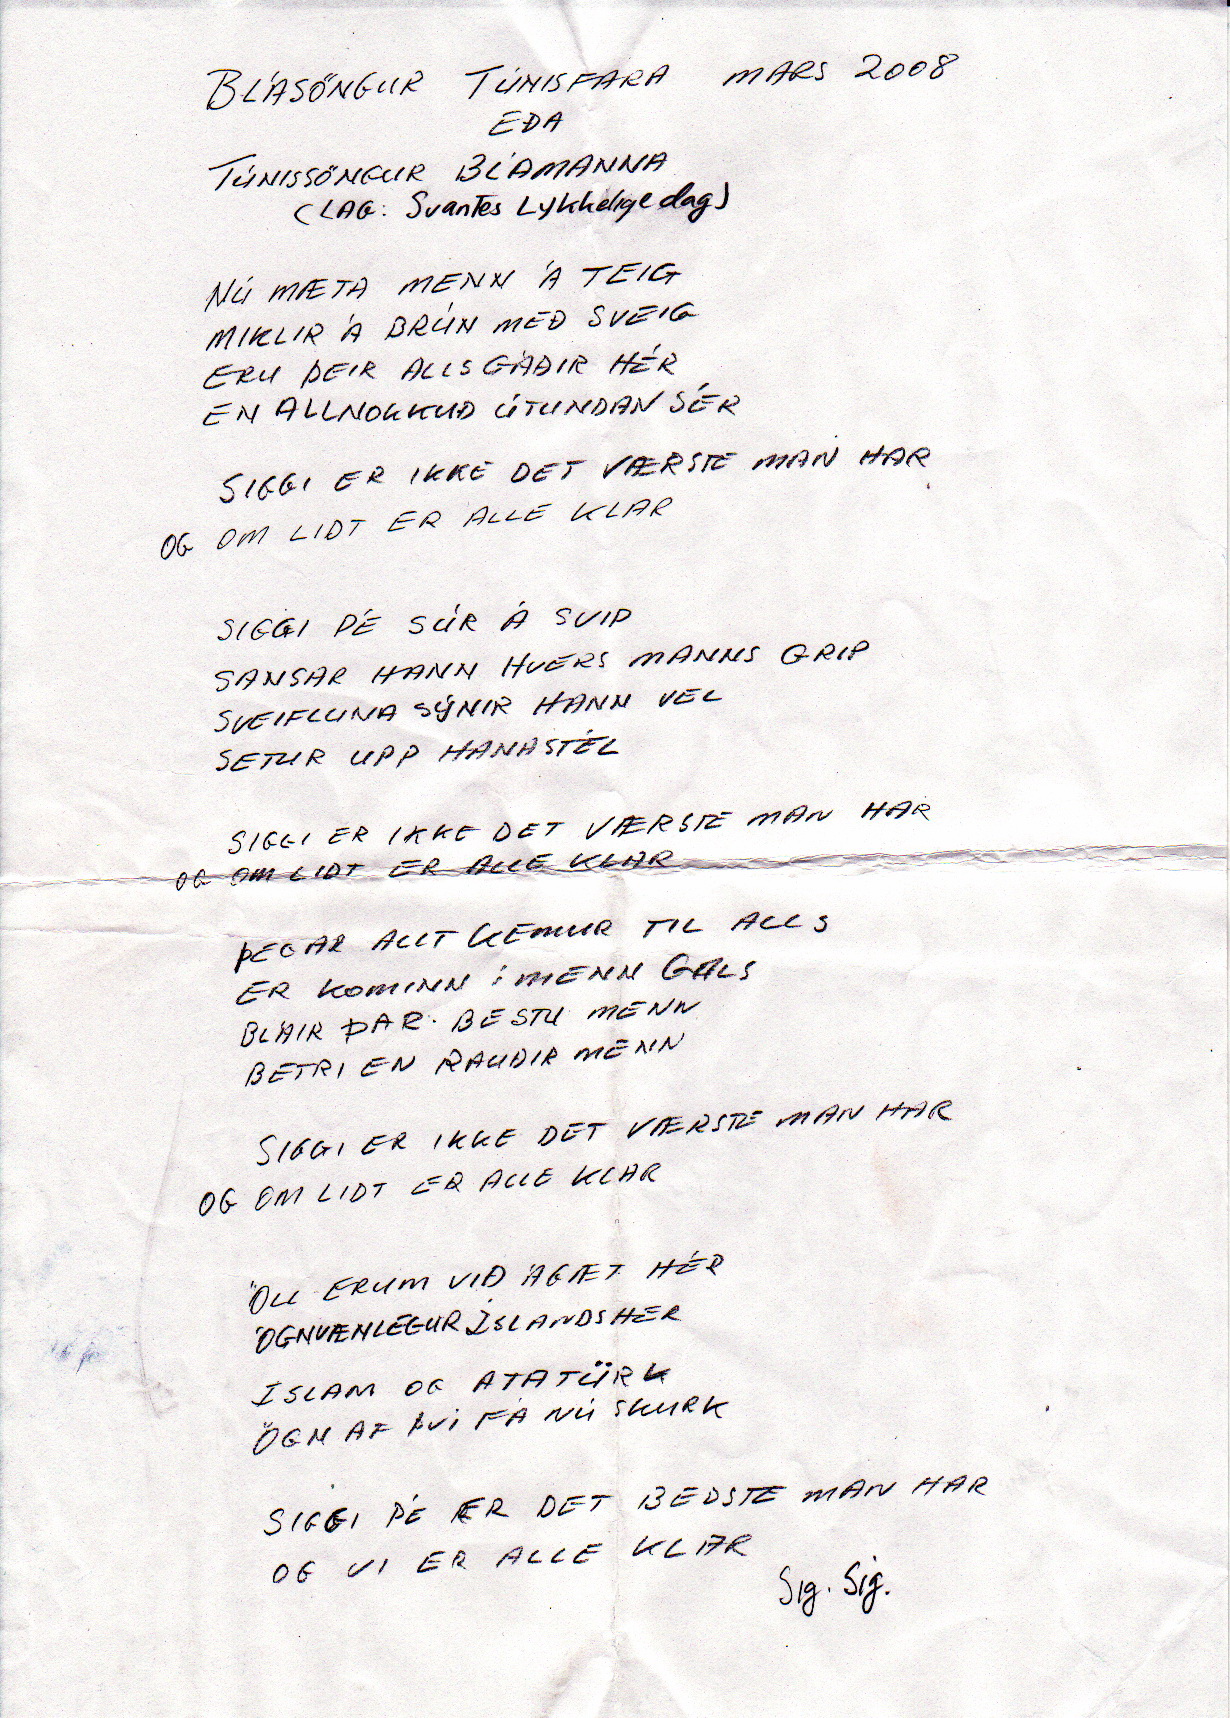 BLÁSÖNGUR TÚNISFARA MARS 2008
EÐA
TÚNISSÖNGUR BLÁMANNA
(LAG: Svantes Lykkelige dag)
NÚ MÆTA MENN Á TEIG
MIKLIR Á BRÚN MEÐ SVEIG
ERU ÞEIR ALLSGÁÐIR HÉR
EN ALLNOKKUÐ ÚTUNDAN SÉR
SIGGI ER IKKE DET VÆRSTE MAN HAR
OG OM LIDT ER ALLE KLAR
SIGGI PÉ SÚR Á SVIP
SANSAR HANN HVERS MANNS GRIP
SVEIFLUNA SÝNIR HANN VEL
SETUR UPP HANASTÉL
SIGGI ER IKKE DET VÆRSTE MAN HAR
OG OM LIDT ER ALLE KLAR
ÞEGAR ALLT KEMUR TIL ALLS
ER KOMINN Í MENN GALS
BLÁIR ÞAR BESTU MENN
BETRI EN RAUÐIR MENN
SIGGI ER IKKE DET VÆRSTE MAN HAR
OG OM LIDT ER ALLE KLAR
ÖLL ERUM VIÐ ÁGÆT HÉR
ÓGNVÆNLEGUR ÍSLANDSHER
ISLAM OG ATATÜRK
ÖGN AF ÞVÍ FÁ NÚ SKURK
SIGGI PÉ ER DET BEDSTE MAN HAR
OG VI ER ALLE KLAR
Sig. Sig.